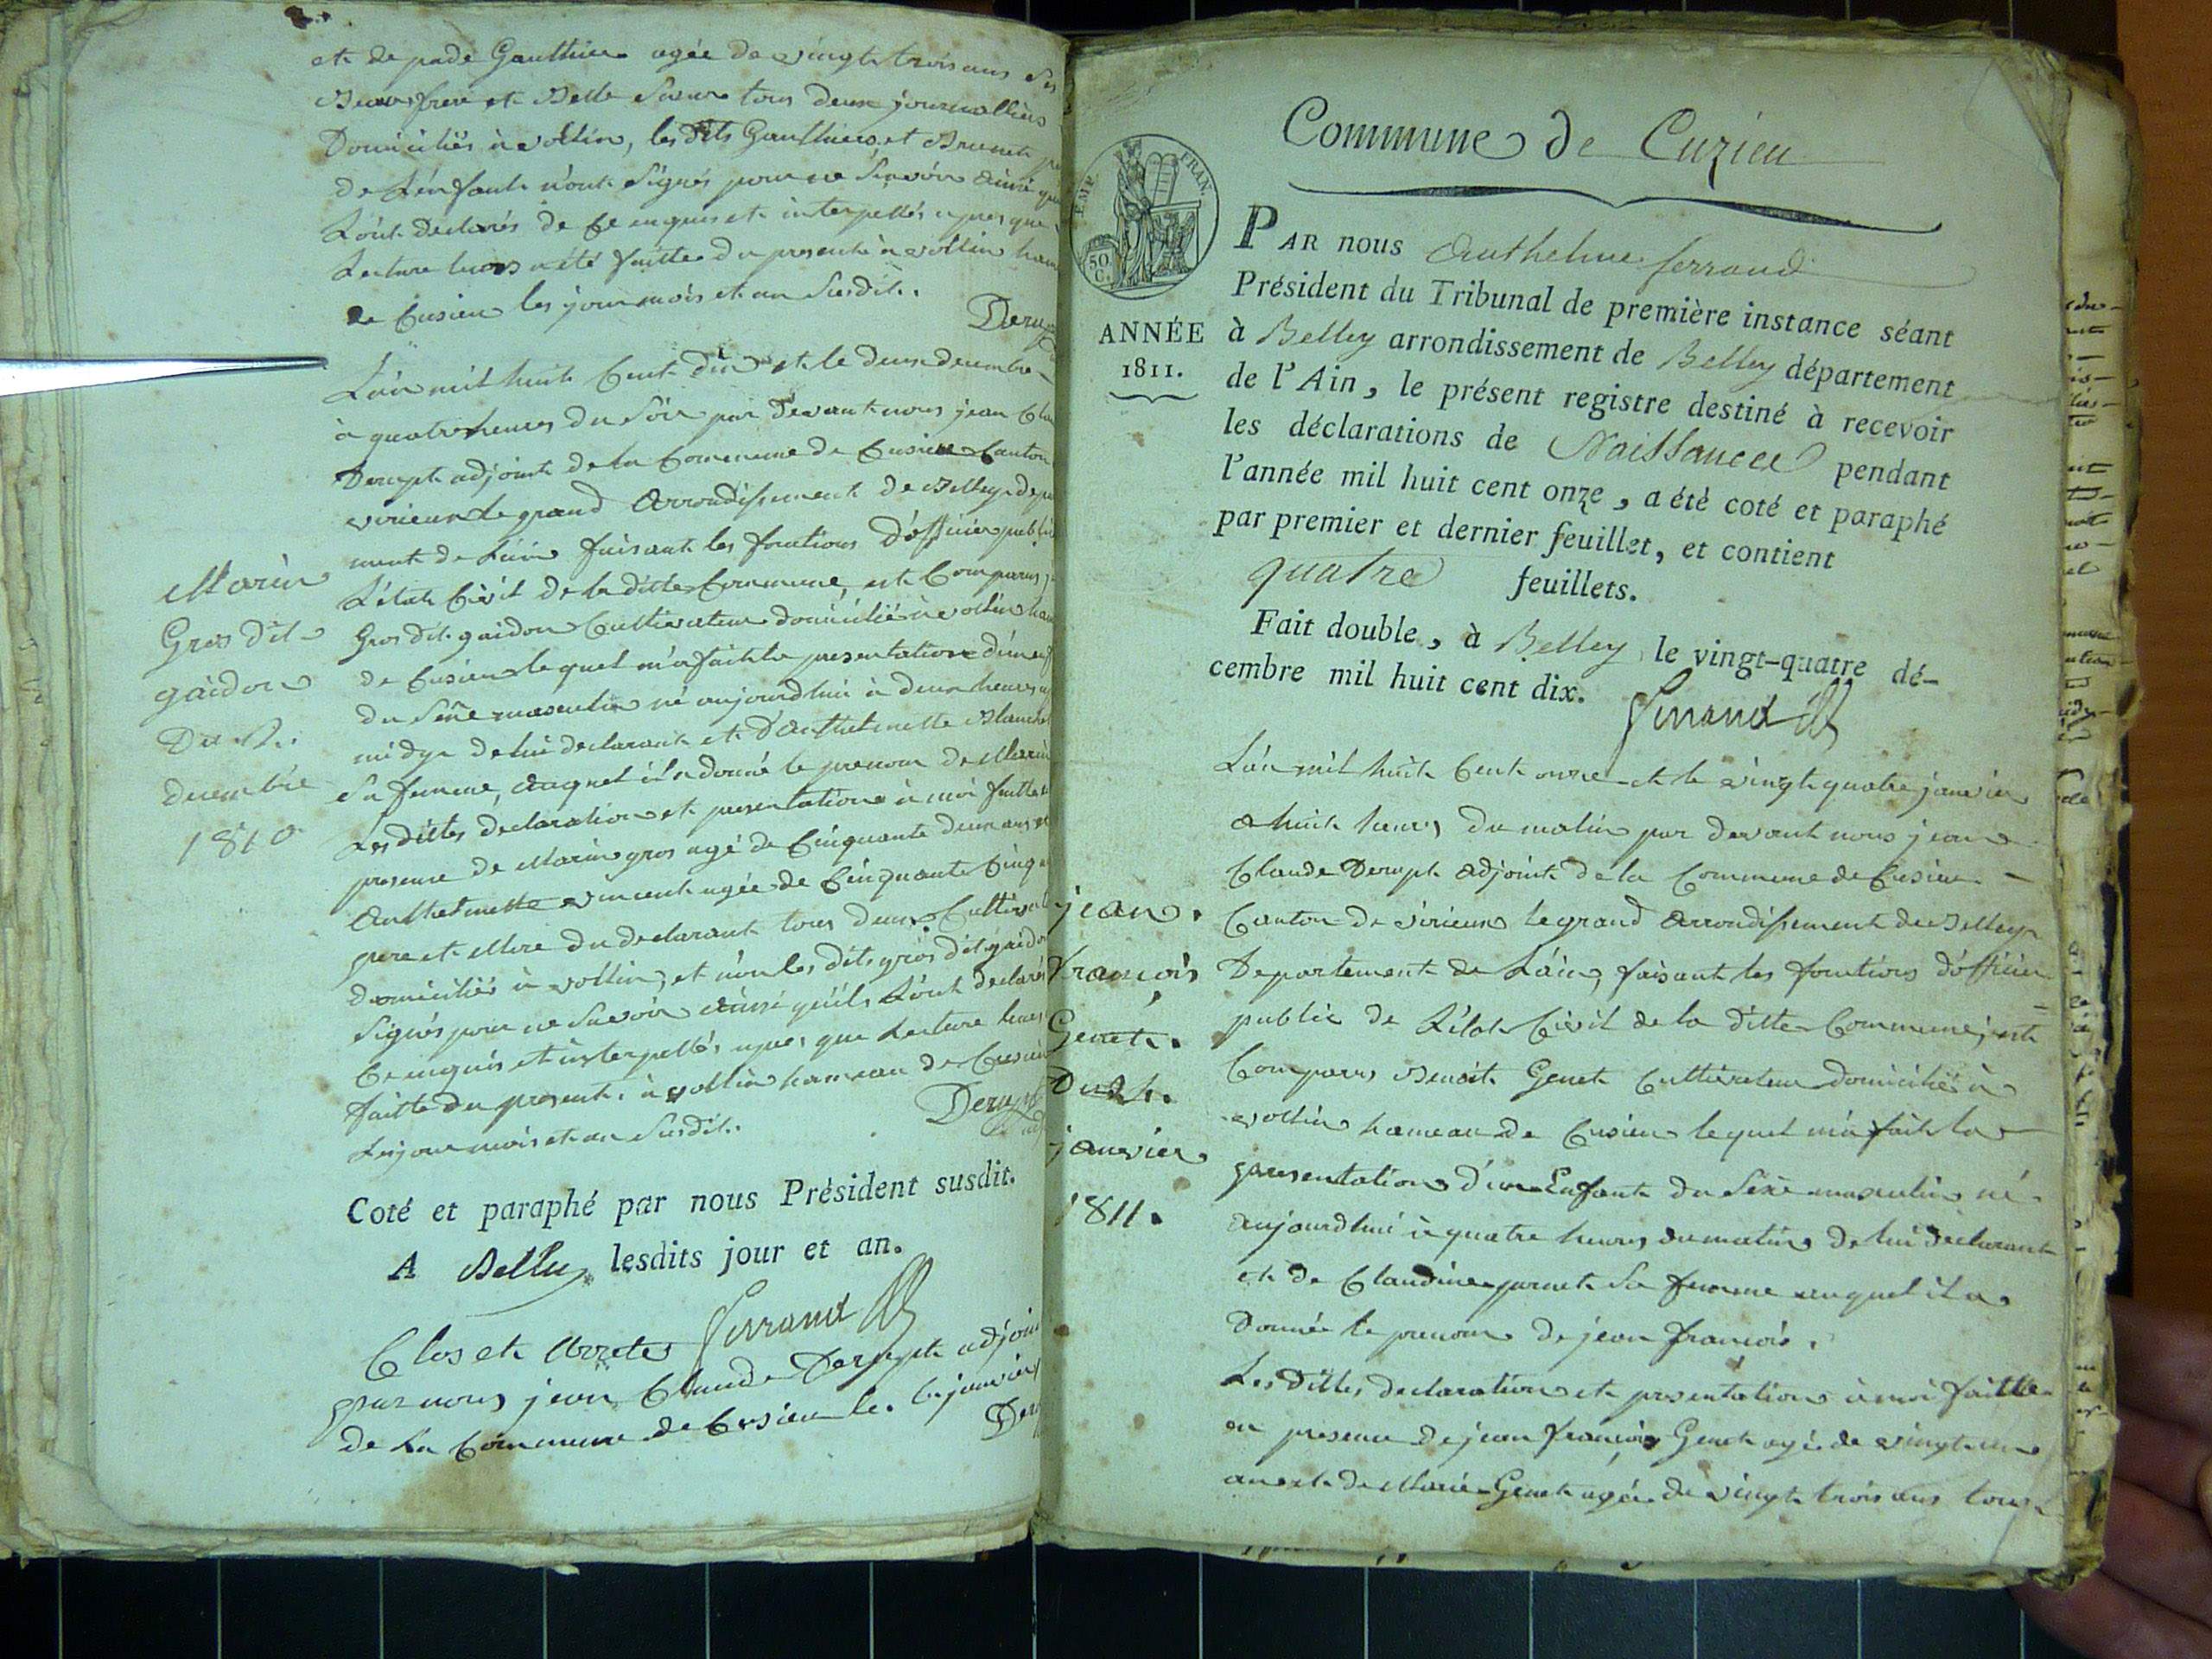 et de Gauthier agée de vingt trois ans
Beaufrere et Belle Soeur tous deux journalliers
Domiciliés à vollin, les dits Gauthier et Brunet
de L'enfant n'ont Signés pour ne Scavoir ainsi
L'ont Declarés de Ce enquis et interpellés apres que
Lecture leurs a été faitte du present à vollin
de Cusieu les jour mois et an Susdit.
L'an mil huit Cent dix et le deux decembre
à quatre heures du Soir par devant nous jean
Derupt adjoint de la Commune de Cusieu Canton
virieux le grand Arrondissement de Belley
ment de L'ain faisant les fonctions d'officier
L'état Civil de la ditte Commune, est Comparu
Gros dit gaidon Cultivateur domicilié à vollin
de Cusieu lequel m'a fait la presentation d'un
du Sexe masculin né aujourdhui à deux heures
midy de lui declarant et d'Anthelmette
Sa femme, auquel il a donné le prenom de Marin
Les dittes declaration et presentation à moi faitte
presence de Marin gros agé de Cinquante deux ans
Anthelmette vincent agée de Cinquante Cinq
pere et Mere du declarant tous deux
domiciliés à vollin, et n'on les dits gros dit
Signés pour ne Savoir ainsi qu'ils L'ont declarés
Ce enquis et interpellés apres que Lecture
faitte du present à vollin hameau de Cusieu
Les jour mois et an Susdit.
Marin
Gros dit
gaidon
Du 2.
decembre
1810
Coté et paraphé par nous Président susdit.
A Belley lesdits jour et an.
Ferrand
Clos et Arreté
par nous jean Claude Derupt
de La Commune de Cusieu le janvier
Commune de Cuzieu
EMP. FRAN.
50.
C.
ANNÉE
1811.
PAR nous Anthelme ferrand
Président du Tribunal de première instance séant
à Belley arrondissement de Belley département
de l'Ain, le présent registre destiné à recevoir
les déclarations de Naissance pendant
l'année mil huit cent onze, a été coté et paraphé
par premier et dernier feuillet, et contient
quatre feuillets.
Fait double, à Belley le vingt-quatre dé-
cembre mil huit cent dix.
Ferrand
jean.
françois
Genet.
Du 24.
janvier
1811.
L'an mil huit Cent onze et le vingt quatre janvier
a huit heures du matin par devant nous jean
Claude Derupt Adjoint de la Commune de Cusieu
Canton de virieux le grand Arrondissement de Belley
Departement de L'ain, faisant les fonctions d'officier
public de L'état Civil de la ditte Commune, est
Comparu Benoit Genet Cultivateur domicilié à
vollin hameau de Cusieu lequel m'a fait la
presentation d'un Enfant du Sexe masculin né
aujourdhui à quatre heures du matin de lui declarant
et de Claudine Sa femme auquel il a
Donné le prenom de jean françois.
Les Dittes declaration et presentation à moi faitte
en presence de jean françois Genet agé de vingt un
ans et de Marie Genet agée de vingt trois ans tous